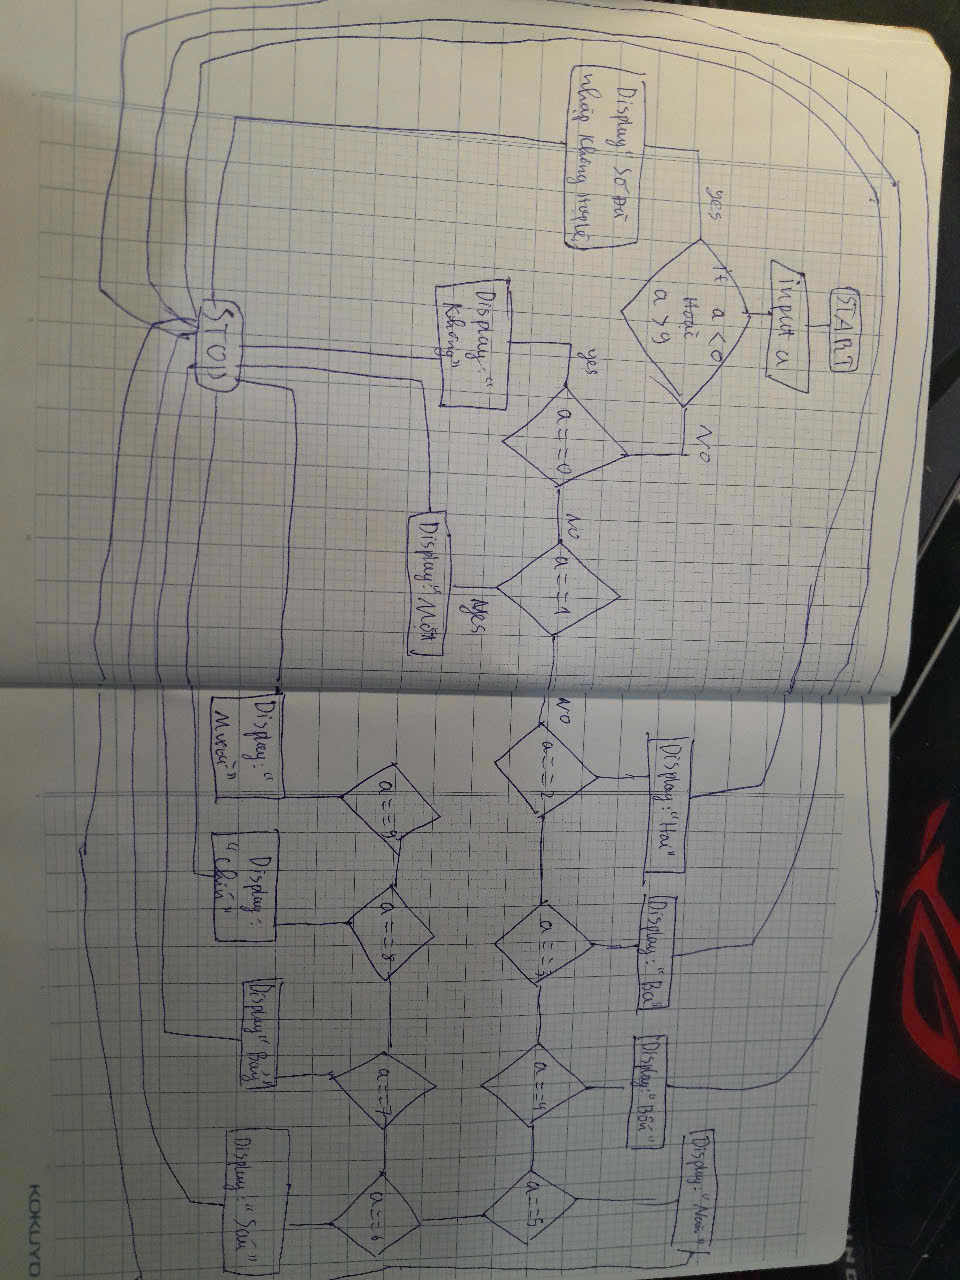 START
input a
if a < 0
Hoặc
a > 9
yes
No
Display: "Số đã
nhập không hợp lệ"
a == 0
yes
Display: "
Không"
No
a == 1
yes
Display: "Một"
No
a == 2
Display: "Hai"
a == 3
Display: "Ba"
a == 4
Display: "Bốn"
a == 5
Display: "Năm"
a == 6
Display: "Sáu"
a == 7
Display: "Bảy"
a == 8
Display:
a == 9
Display: "
STOP
KOKUYO